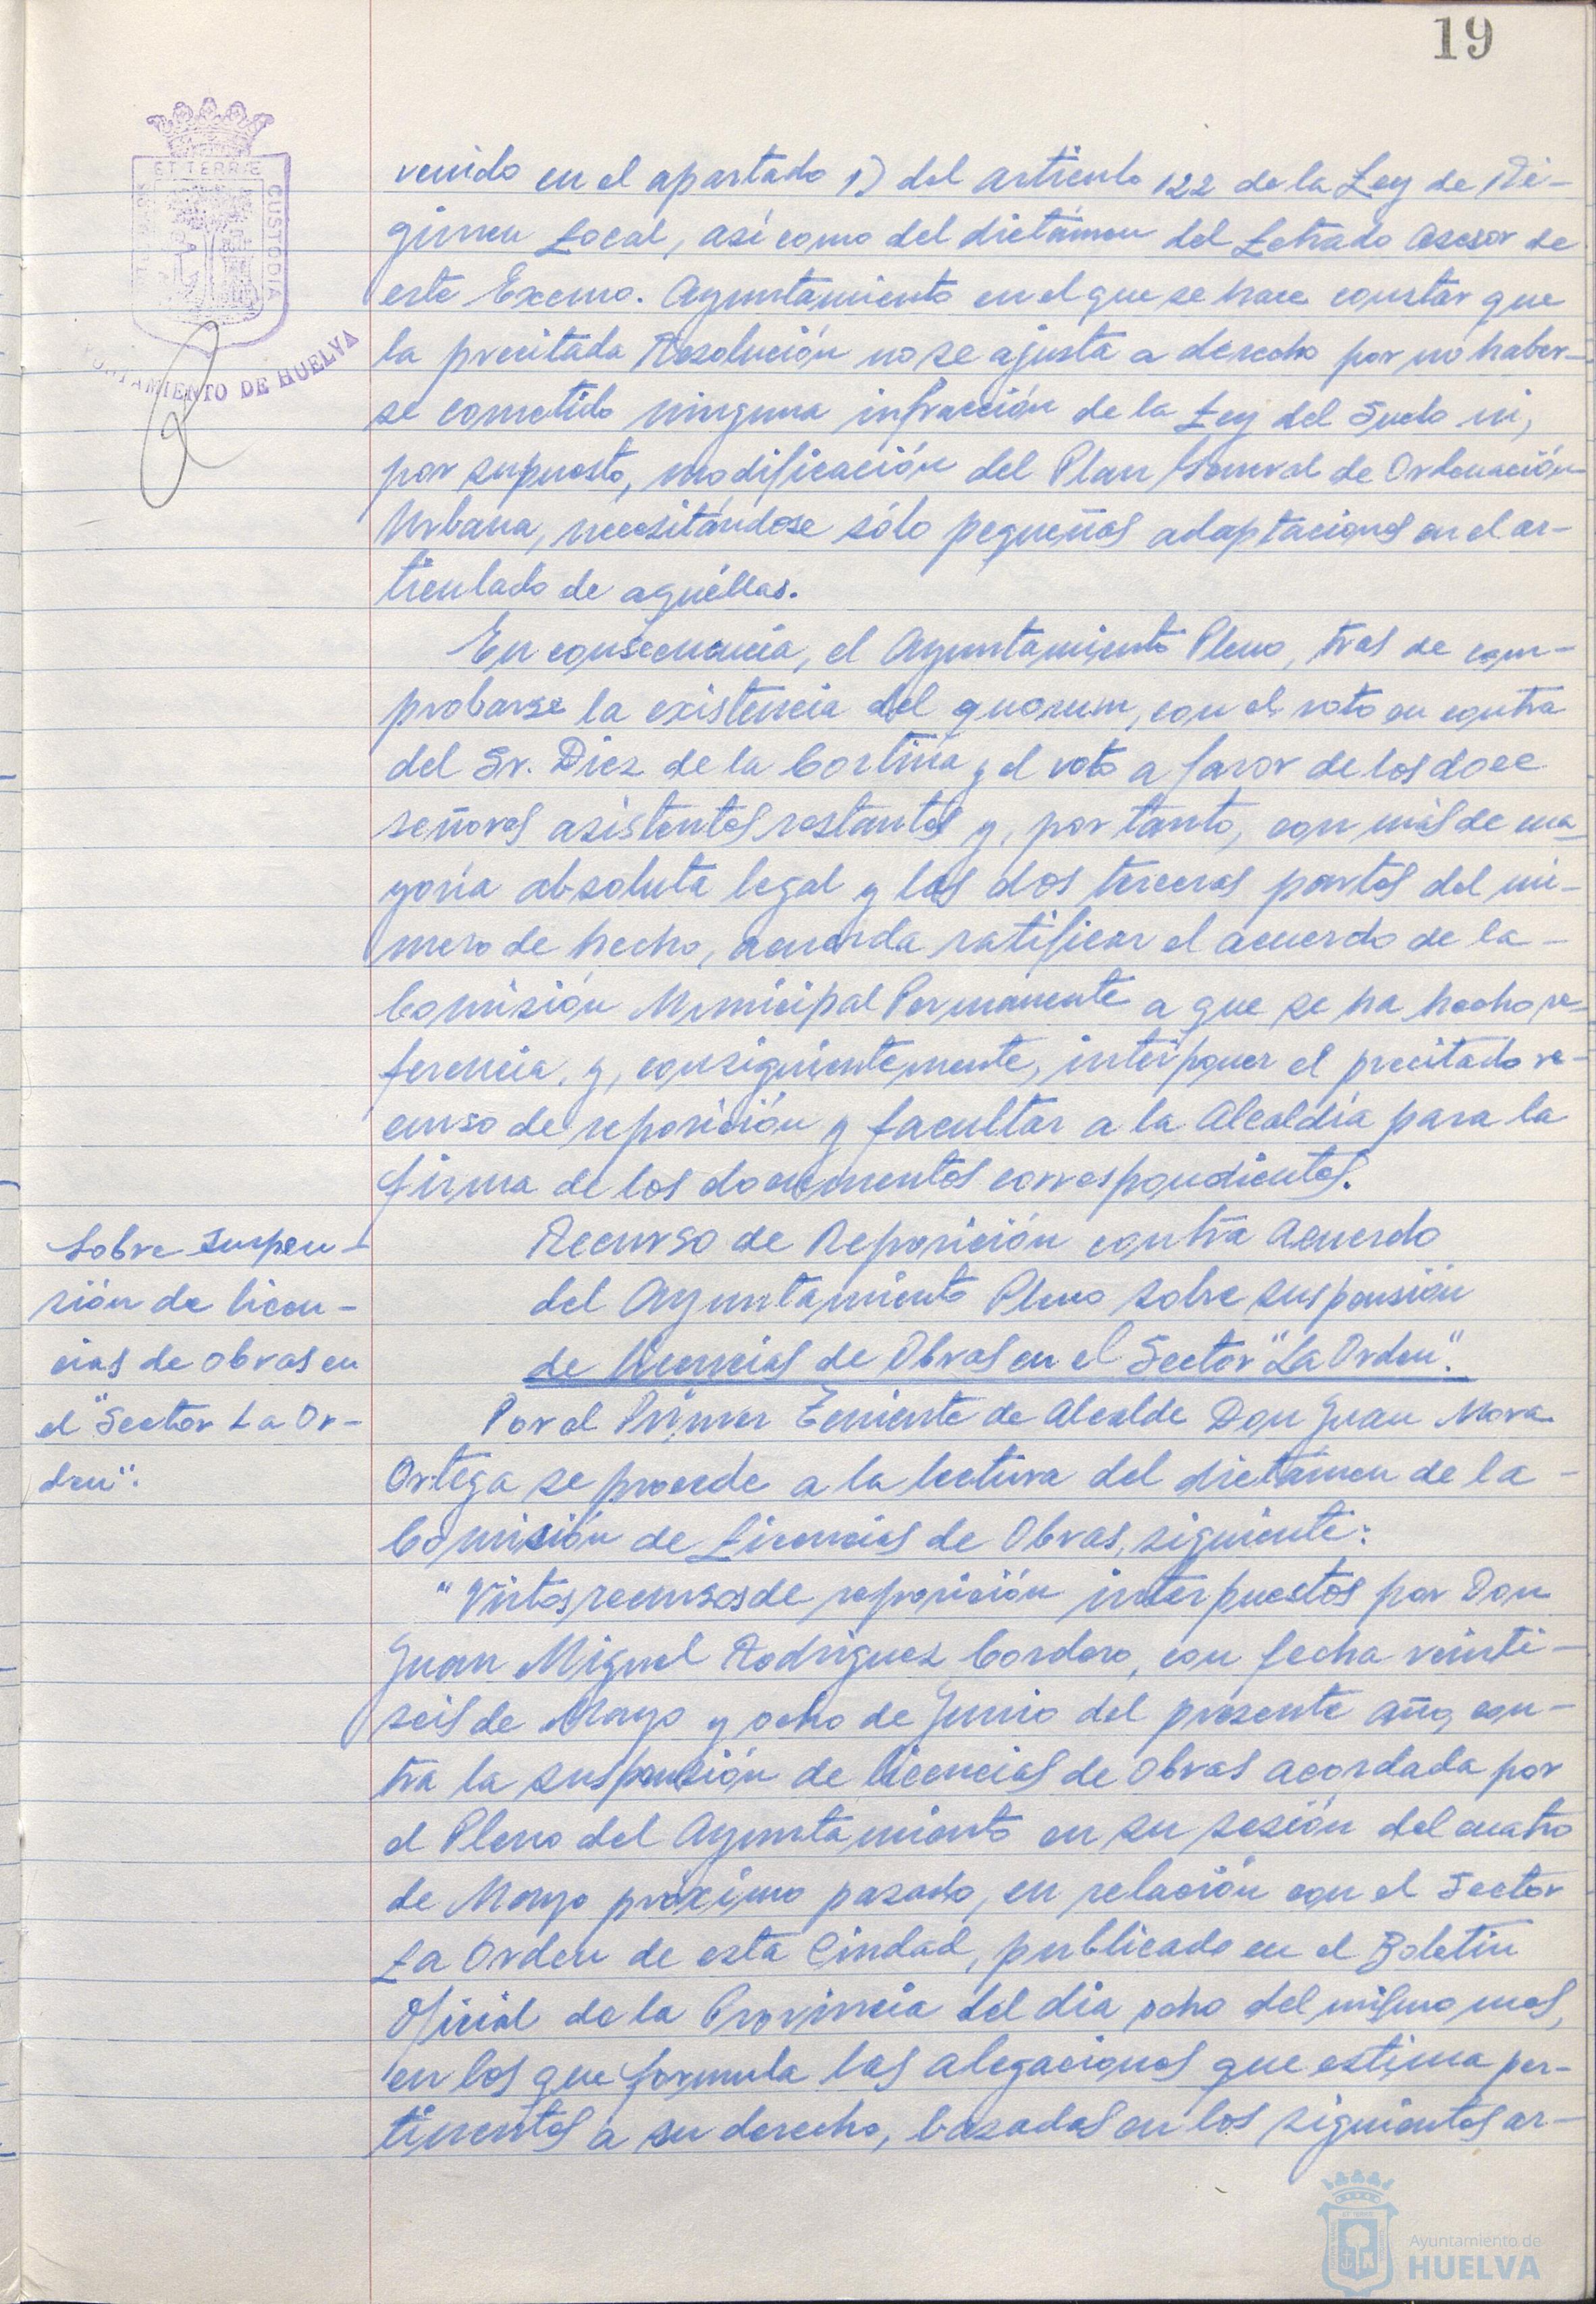 19
ET TERRÆ
CUSTODIA
AYUNTAMIENTO DE HUELVA
venido en el apartado 1) del artículo 122 de la Ley de Ré-
gimen Local, así como del dictámen del Letrado Asesor de
este Excmo. Ayuntamiento en el que se hace constar que
la precitada Resolución no se ajusta a derecho por no haber-
se cometido ninguna infracción de la Ley del Suelo ni,
por supuesto, modificación del Plan General de Ordenación
Urbana, necesitándose sólo pequeñas adaptaciones en el ar-
ticulado de aquéllas.
En consecuencia, el Ayuntamiento Pleno, tras de com-
probarse la existencia del quorum, con el voto en contra
del Sr. Diez de la Cortina y el voto a favor de los doce
señores asistentes restantes y, por tanto, con más de ma
yoría absoluta legal y las dos terceras partes del nú-
mero de hecho, acuerda ratificar el acuerdo de la -
Comisión Municipal Permanente a que se ha hecho re-
ferencia, y, consiguientemente, interponer el precitado re-
curso de reposición y facultar a la Alcaldía para la
firma de los documentos correspondientes.
Sobre suspen-
sión de licen-
cias de obras en
el "Sector La Or-
den".
Recurso de Reposición contra Acuerdo
del Ayuntamiento Pleno sobre suspensión
de licencias de Obras en el Sector "La Orden".
Por el Primer Teniente de Alcalde Don Juan Mora
Ortega se procede a la lectura del dictámen de la -
Comisión de Licencias de Obras, siguiente:
"Vistos recursos de reposición interpuestos por Don
Juan Miguel Rodríguez Cordero, con fecha veinti-
seis de Mayo y ocho de Junio del presente año, con-
tra la suspensión de licencias de obras acordada por
el Pleno del Ayuntamiento en su sesión del cuatro
de Mayo próximo pasado, en relación con el Sector
La Orden de esta Ciudad, publicado en el Boletín
Oficial de la Provincia del día ocho del mismo mes,
en los que formula las alegaciones que estima per-
tinentes a su derecho, basadas en los siguientes ar-
Ayuntamiento de
HUELVA